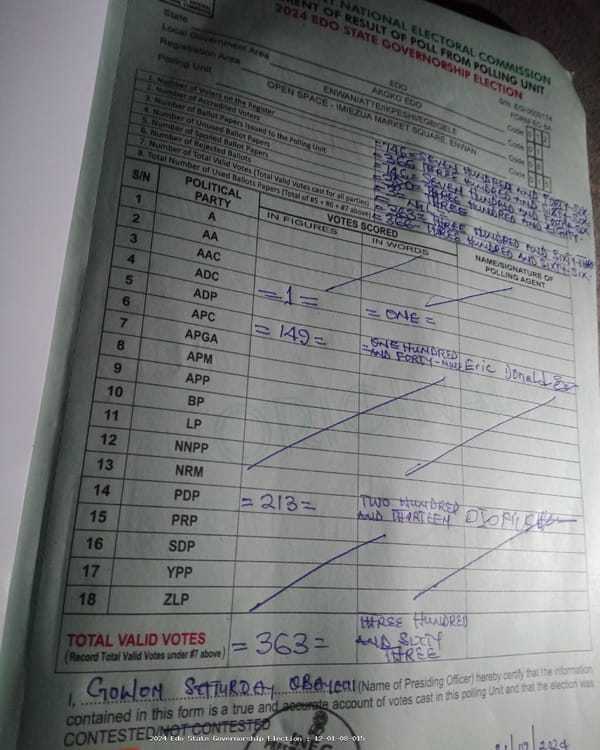 NT NATIONAL ELECTORAL COMMISSION
MENT OF RESULT OF POLL FROM POLLING UNIT
2024 EDO STATE GOVERNORSHIP ELECTION
State EDO
Local Government Area AKOKO EDO
Registration Area ENWAN/ATTE/IKPESHI/EGBIGELE
Polling Unit OPEN SPACE - IMIEZUA MARKET SQUARE, ENWAN
FORM EC 8A
Code
Code
Code
1. Number of Voters on the Register =746= SEVEN HUNDRED AND FORTY-SIX
2. Number of Accredited Voters =366= THREE HUNDRED AND SIXTY-SIX
3. Number of Ballot Papers Issued to the Polling Unit =746= SEVEN HUNDRED AND FORTY-SIX
4. Number of Unused Ballot Papers =380= THREE HUNDRED AND EIGHTY
5. Number of Spoiled Ballot Papers
6. Number of Rejected Ballots THREE
7. Number of Total Valid Votes (Total Valid Votes cast for all parties) =363= THREE HUNDRED AND SIXTY-THREE
8. Total Number of Used Ballots Papers (Total of #5 + #6 + #7 above) =366= THREE HUNDRED AND SIXTY-SIX
S/N POLITICAL PARTY VOTES SCORED NAME/SIGNATURE OF POLLING AGENT
IN FIGURES IN WORDS
1 A
2 AA
3 AAC
4 ADC
5 ADP =1= =ONE=
6 APC =149= =ONE HUNDRED AND FORTY-NINE Eric Donald
7 APGA
8 APM
9 APP
10 BP
11 LP
12 NNPP
13 NRM
14 PDP =213= TWO HUNDRED AND THIRTEEN
15 PRP
16 SDP
17 YPP
18 ZLP
TOTAL VALID VOTES =363= THREE HUNDRED AND SIXTY THREE
(Record Total Valid Votes under #7 above)
I, GOWON SATURDAY OBAYEMI (Name of Presiding Officer) hereby certify that the information
contained in this form is a true and accurate account of votes cast in this polling Unit and that the election was
CONTESTED/NOT CONTESTED
2024 Edo State Governorship Election : 12-01-08-015